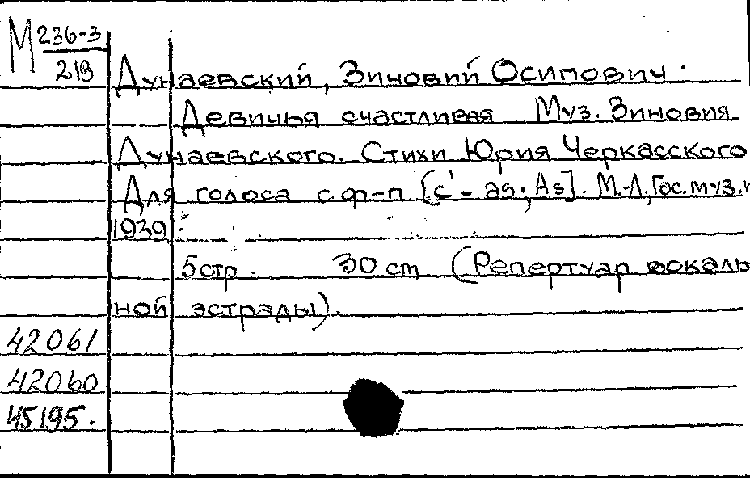 М 236-3
219
Дунаевский, Зиновий Осипович.
Девичья счастливая Муз. Зиновия
Дунаевского. Стихи Юрия Черкасского
Для голоса с ф-п [c'-as; As]. М.-Л., Гос. муз. и
1939.
5 стр. 30 cm (Репертуар вокаль
ной эстрады).
42061
42060
45195.